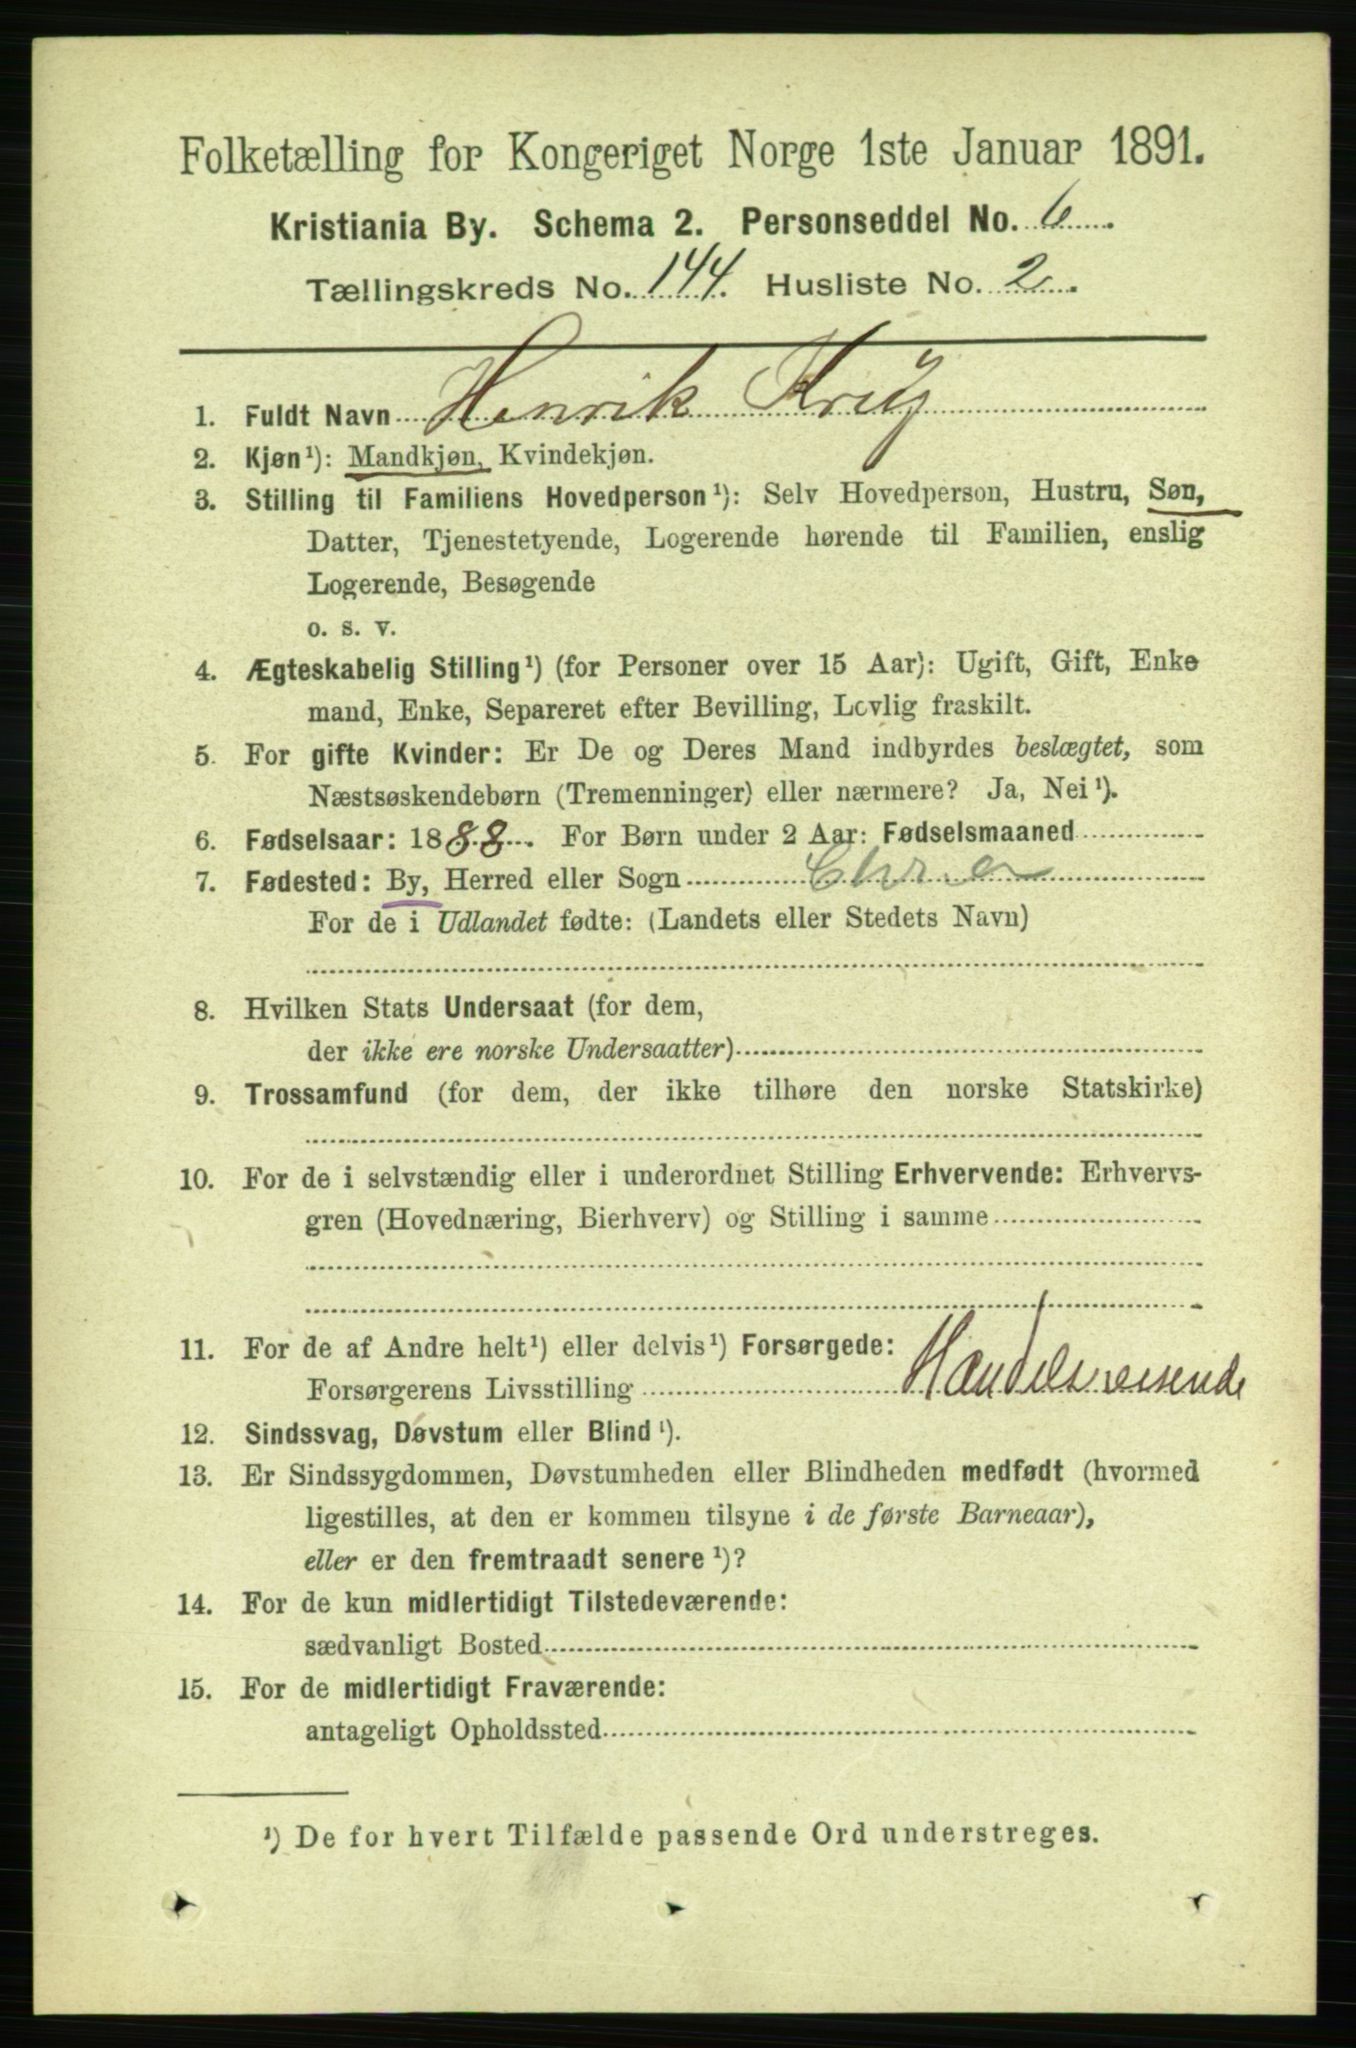 Folketælling for Kongeriget Norge 1ste Januar 1891.
Kristiania By. Schema 2. Personseddel No. 6.
Tællingskreds No. 144. Husliste No. 2.
1. Fuldt Navn Henrik
2. Kjøn¹): Mandkjøn, Kvindekjøn.
3. Stilling til Familiens Hovedperson¹): Selv Hovedperson, Hustru, Søn,
Datter, Tjenestetyende, Logerende hørende til Familien, enslig
Logerende, Besøgende
o. s. v.
4. Ægteskabelig Stilling¹) (for Personer over 15 Aar): Ugift, Gift, Enke
mand, Enke, Separeret efter Bevilling, Lovlig fraskilt.
5. For gifte Kvinder: Er De og Deres Mand indbyrdes beslægtet, som
Næstsøskendebørn (Tremenninger) eller nærmere? Ja, Nei¹).
6. Fødselsaar: 1888. For Børn under 2 Aar: Fødselsmaaned
7. Fødested: By, Herred eller Sogn
For de i Udlandet fødte: (Landets eller Stedets Navn)
8. Hvilken Stats Undersaat (for dem,
der ikke ere norske Undersaatter)
9. Trossamfund (for dem, der ikke tilhøre den norske Statskirke)
10. For de i selvstændig eller i underordnet Stilling Erhvervende: Erhvervs-
gren (Hovednæring, Bierhverv) og Stilling i samme
11. For de af Andre helt¹) eller delvis¹) Forsørgede:
Forsørgerens Livsstilling Handelsreisende
12. Sindssvag, Døvstum eller Blind¹).
13. Er Sindssygdommen, Døvstumheden eller Blindheden medfødt (hvormed
ligestilles, at den er kommen tilsyne i de første Barneaar),
eller er den fremtraadt senere¹)?
14. For de kun midlertidigt Tilstedeværende:
sædvanligt Bosted
15. For de midlertidigt Fraværende:
antageligt Opholdssted
¹) De for hvert Tilfælde passende Ord understreges.